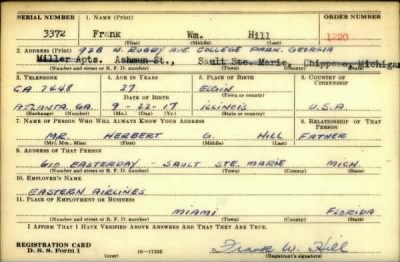 SERIAL NUMBER 1. NAME (Print) ORDER NUMBER
3372 Frank Wm. Hill 1220
(First) (Middle) (Last)
2. ADDRESS (Print) 928 W. RUGBY AVE COLLEGE PARK. GEORGIA
Miller Apts. Ashmun St., Sault Ste. Marie, Chippewa, Michigan
(Number and street or R. F. D. number) (Town) (County) (State)
3. TELEPHONE 4. AGE IN YEARS 5. PLACE OF BIRTH 6. COUNTRY OF CITIZENSHIP
CA 7448 27 ELGIN
DATE OF BIRTH (Town or county)
ATLANTA GA. 9-22-17 ILLINOIS U.S.A.
(Exchange) (Number) (Mo.) (Day) (Yr.) (State or country)
7. NAME OF PERSON WHO WILL ALWAYS KNOW YOUR ADDRESS 8. RELATIONSHIP OF THAT PERSON
MR. HERBERT G. HILL FATHER
(Mr., Mrs., Miss) (First) (Middle) (Last)
9. ADDRESS OF THAT PERSON
610 EASTERDAY - SAULT STE. MARIE MICH.
(Number and street or R. F. D. number) (Town) (County) (State)
10. EMPLOYER'S NAME
EASTERN AIRLINES
11. PLACE OF EMPLOYMENT OR BUSINESS
MIAMI FLORIDA
(Number and street or R. F. D. number) (Town) (County) (State)
I AFFIRM THAT I HAVE VERIFIED ABOVE ANSWERS AND THAT THEY ARE TRUE.
REGISTRATION CARD
D. S. S. Form 1 (over) Frank W. Hill
(Registrant's signature)